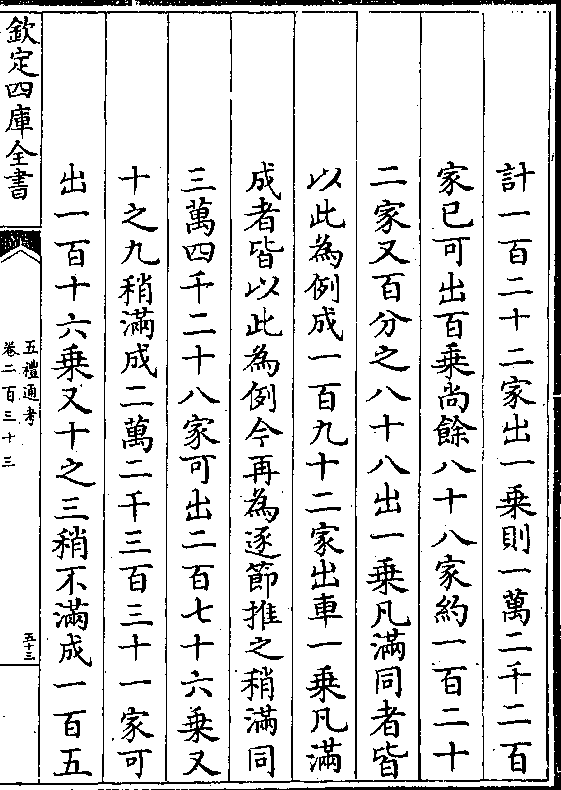 計一百二十二家出一乗則一萬二千二百
家已可出百乗尚餘八十八家約一百二十
二家又百分之八十八出一乗凡滿同者皆
以此為例成一百九十二家出車一乗凡滿
成者皆以此為例今再為逐節推之稍滿同
三萬四千二十八家可出二百七十六乗又
十之九稍滿成二萬二千三百三十一家可
出一百十六乗又十之三稍不滿成一百五
欽定四庫全書
五禮通考
卷二百三十三
五十三